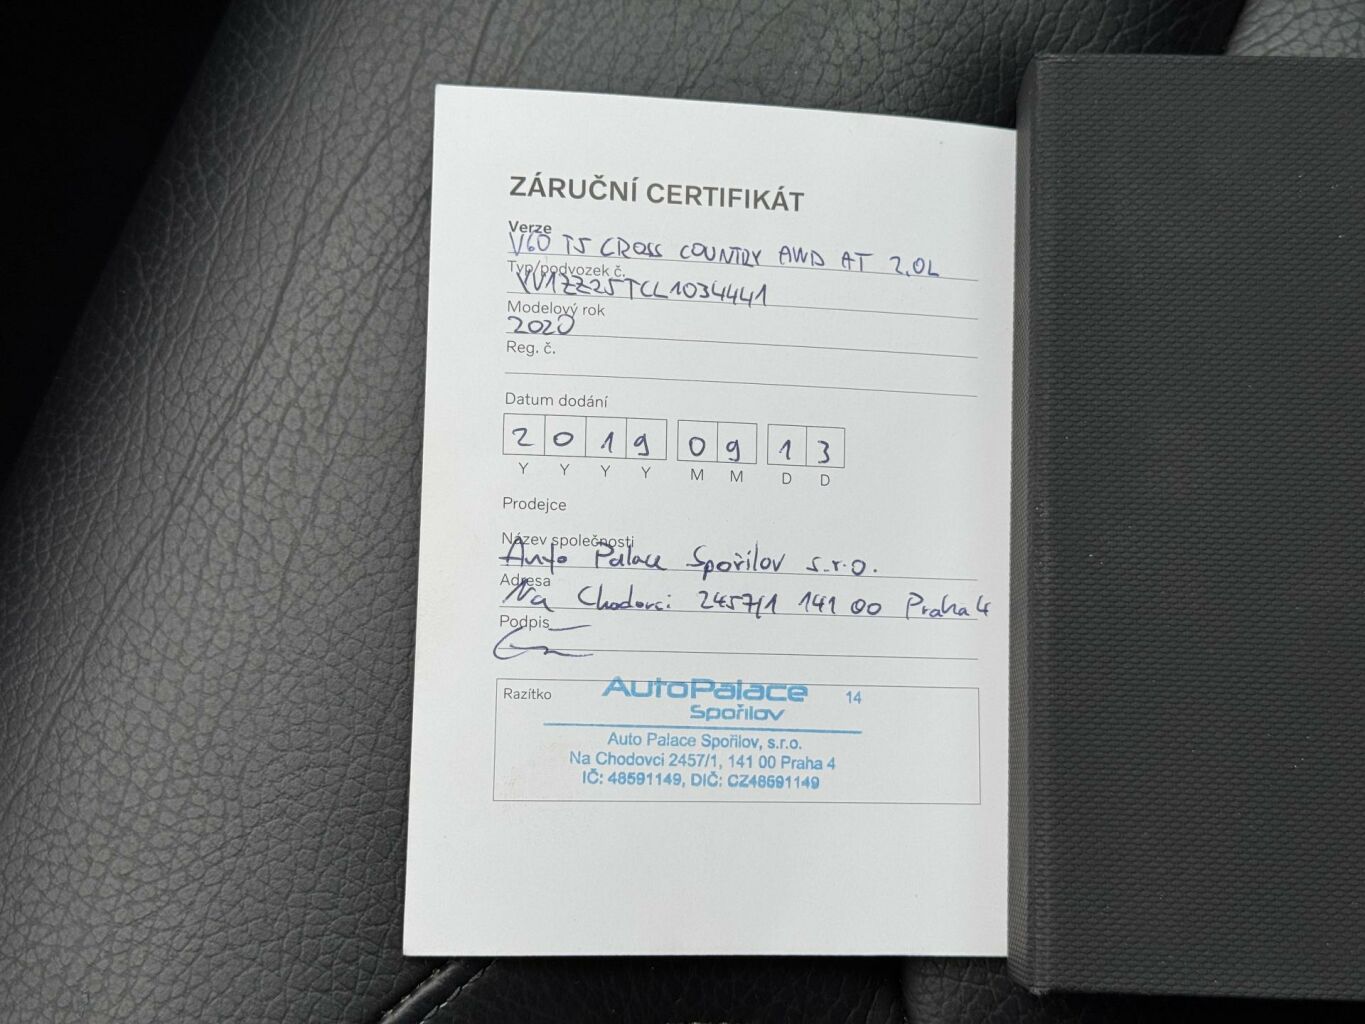 ZÁRUČNÍ CERTIFIKÁT
Verze
V60 T5 CROSS COUNTRY AWD AT 2.0L
Typ/podvozek č.
YV1ZZ25TCL1034441
Modelový rok
2020
Reg. č.
Datum dodání
2019 09 13
Y Y Y Y M M D D
Prodejce
Název společnosti
Auto Palace Spořilov s.r.o.
Adresa
Na Chodovci 2457/1 141 00 Praha 4
Podpis
Razítko
AutoPalace 14
Spořilov
Auto Palace Spořilov, s.r.o.
Na Chodovci 2457/1, 141 00 Praha 4
IČ: 48591149, DIČ: CZ48591149